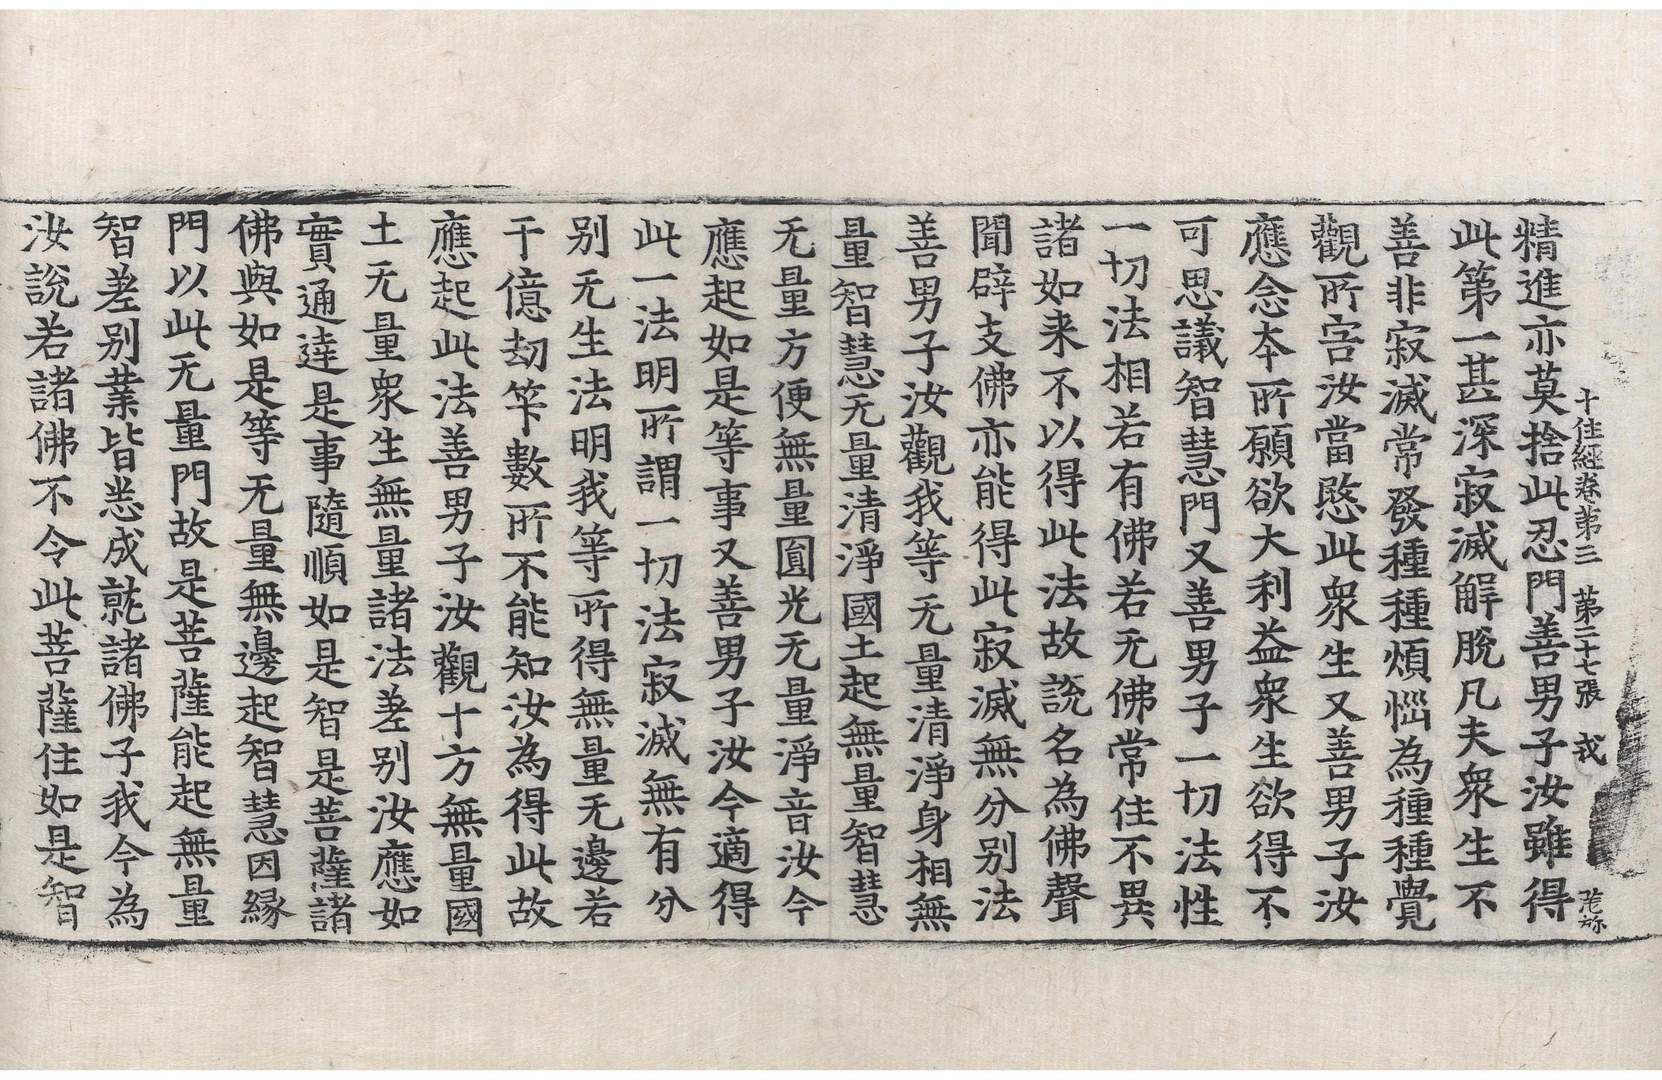 十住經卷第三　第二十七張　戎
精進亦莫捨此忍門善男子汝雖得
此第一甚深寂滅解脫凡夫衆生不
善非寂滅常發種種煩惱為種種覺
觀所害汝當愍此衆生又善男子汝
應念本所願欲大利益衆生欲得不
可思議智慧門又善男子一切法性
一切法相若有佛若无佛常住不異
諸如来不以得此法故說名為佛聲
聞辟支佛亦能得此寂滅無分别法
善男子汝觀我等无量清淨身相無
量智慧无量清淨國土起無量智慧
无量方便無量圓光无量淨音汝今
應起如是等事又善男子汝今適得
此一法明所謂一切法寂滅無有分
别无生法明我等所得無量无邊若
干億劫筭數所不能知汝為得此故
應起此法善男子汝觀十方無量國
土无量衆生無量諸法差别汝應如
實通達是事隨順如是智是菩薩諸
佛與如是等无量無邊起智慧因縁
門以此无量門故是菩薩能起無量
智差别業皆悉成就諸佛子我今為
汝說若諸佛不令此菩薩住如是智